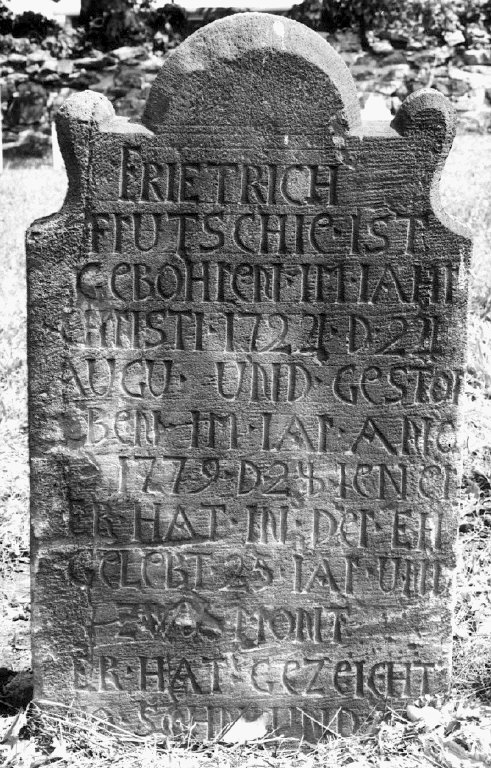 FRIETRICH
PFUTSCHIE · IST
GEBOHREN · IM · IAHR
CHRISTI · 1724 · D · 24
AUGU · UND · GESTOR
BEN · IM · IAR · ANO
1779 · D 24 · IENER
ER · HAT · IN · DER · EH
GELEBT · 23 · IAR · UNT
MONT
ER · HAT · GEZEICHT
SEHN UND